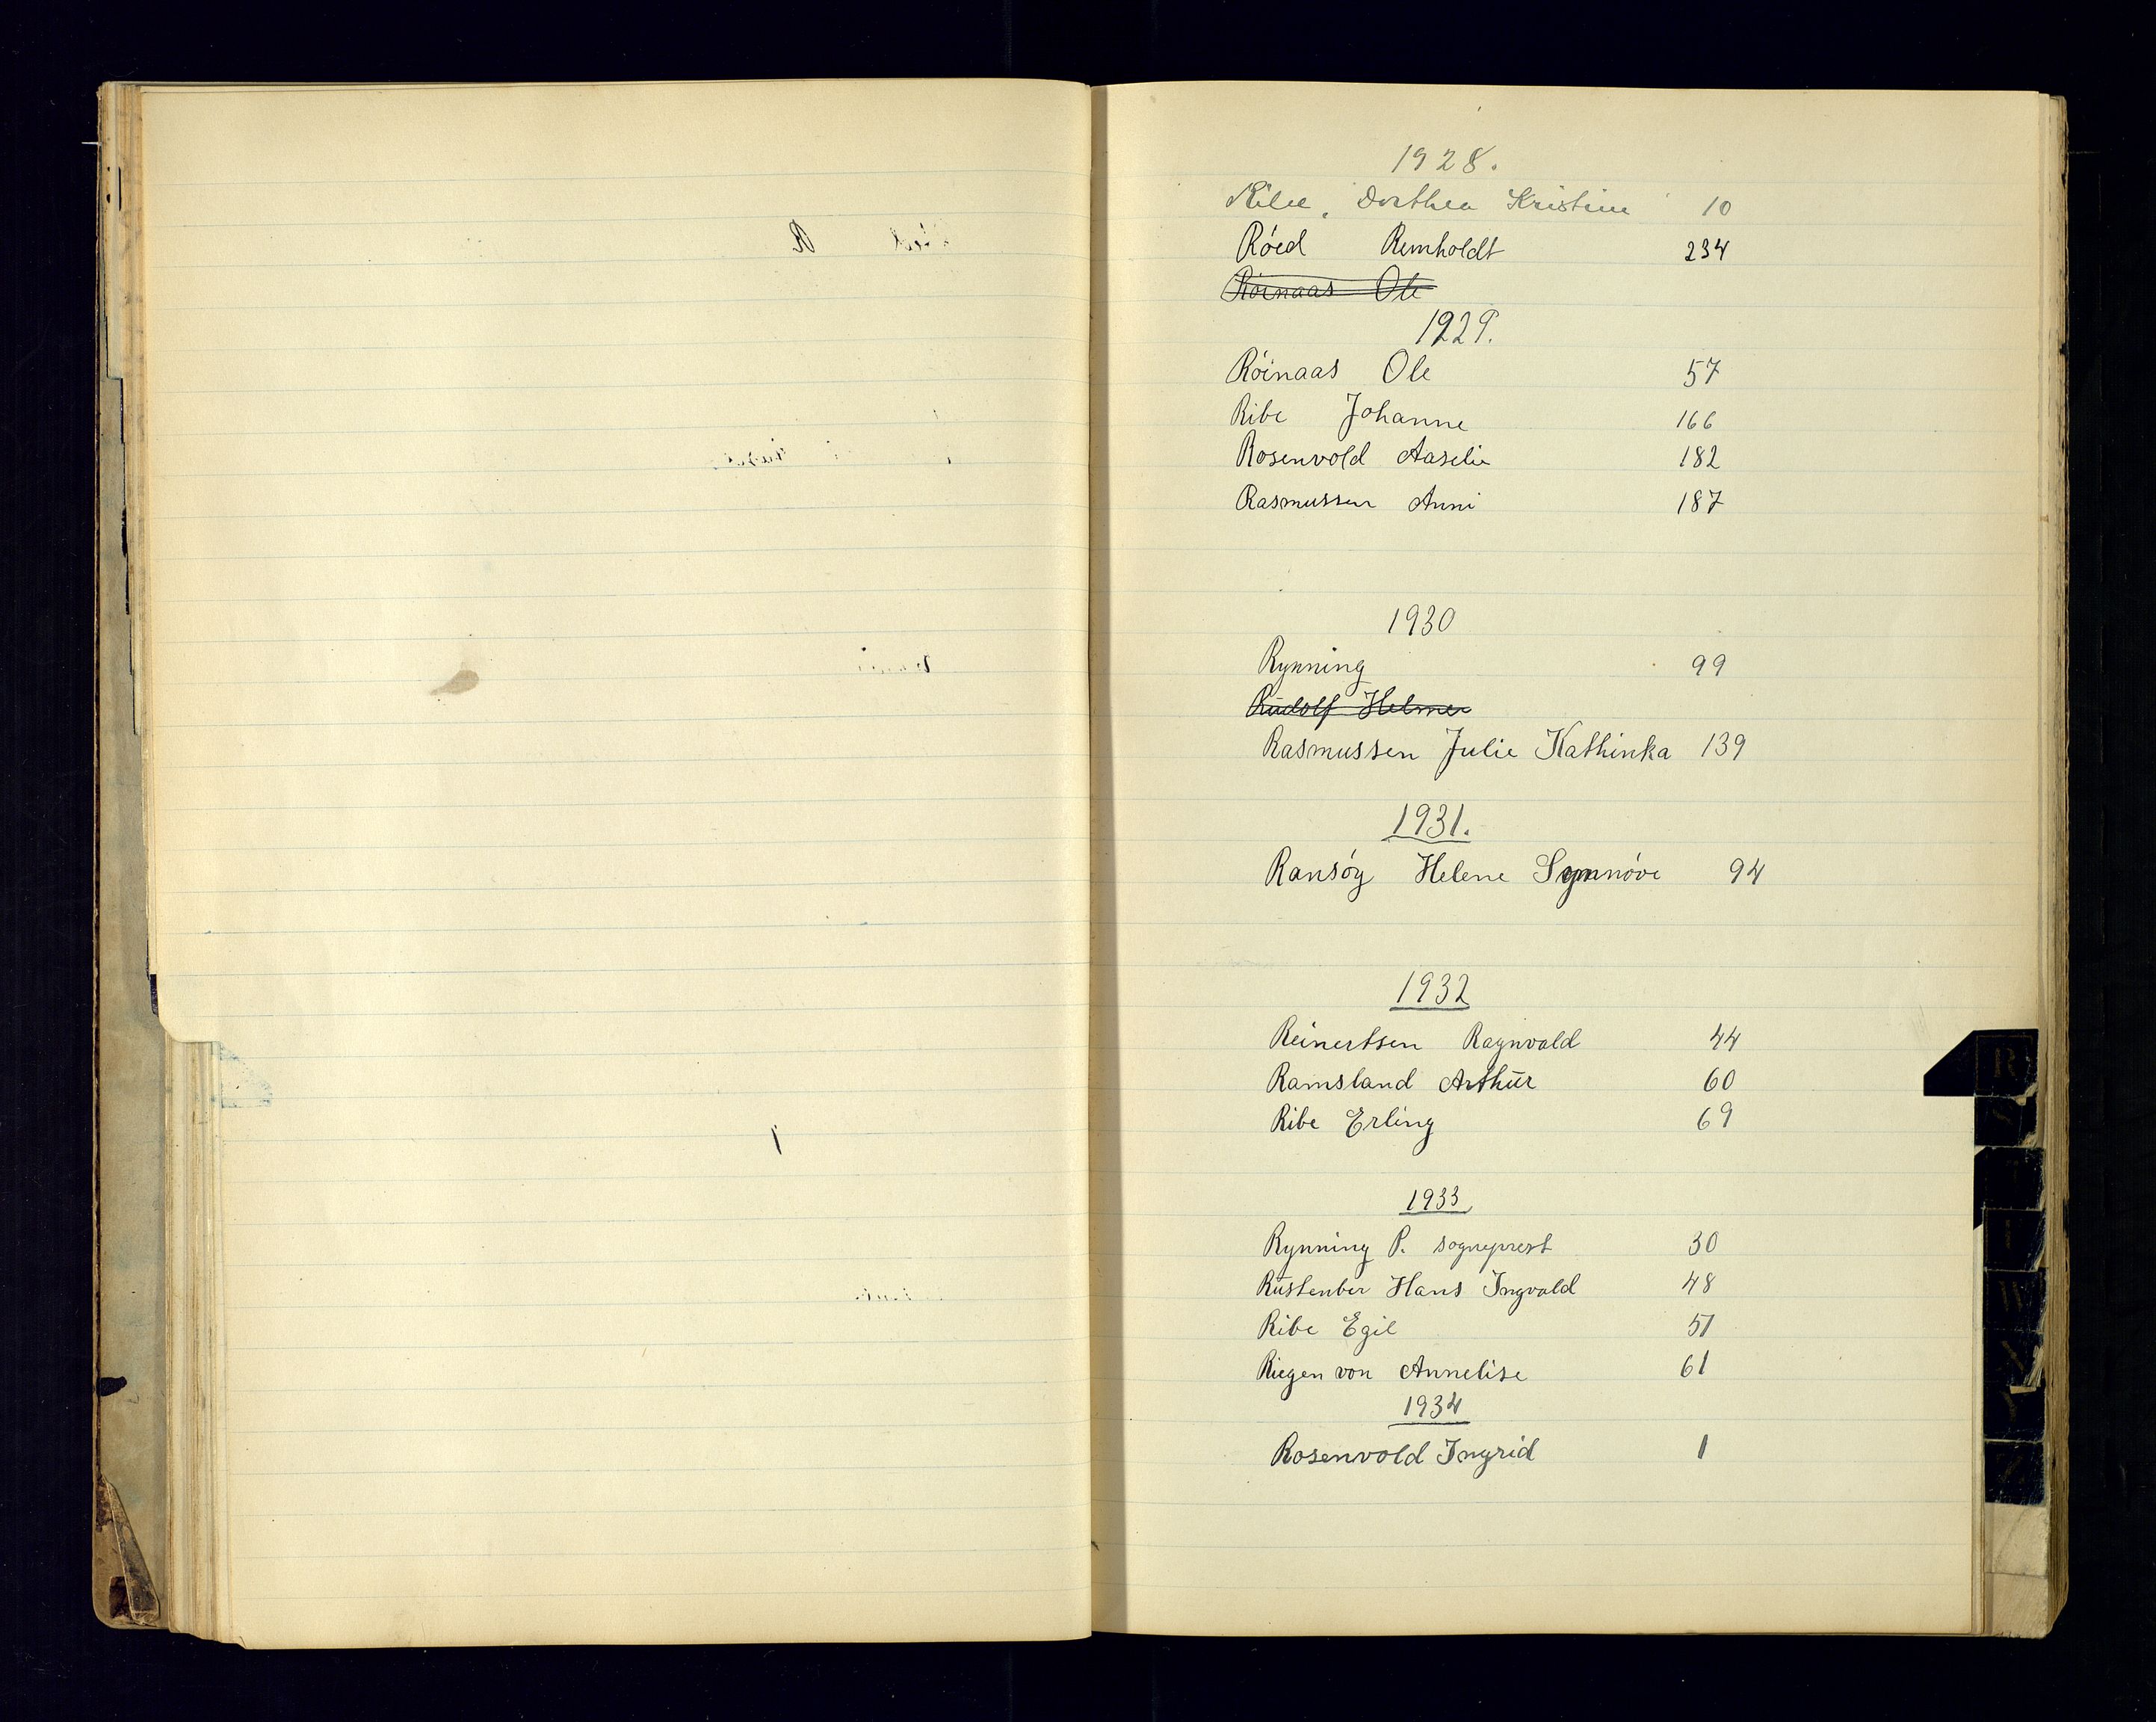 1928.
Ribe, Dorthea Kristine 10
Róed Remholdt 234
Róinaas Ole
1929.
Róinaas Ole 57
Ribe Johanne 166
Rosenvold Aaselie 182
Rasmussen Anni 187
1930
Rynning 99
Rudolf Helmer
Rasmussen Julie Kathinka 139
1931.
Ransóy Helene Synnóve 94
1932
Reinertsen Ragnvald 44
Ramsland Arthūr 60
Ribe Erling 69
1933
Rynning P. sogneprest 30
Rūstenber Hans Ingvald 48
Ribe Egil 51
Riegen von Annelise 61
1934
Rosenvold Ingrid 1
R